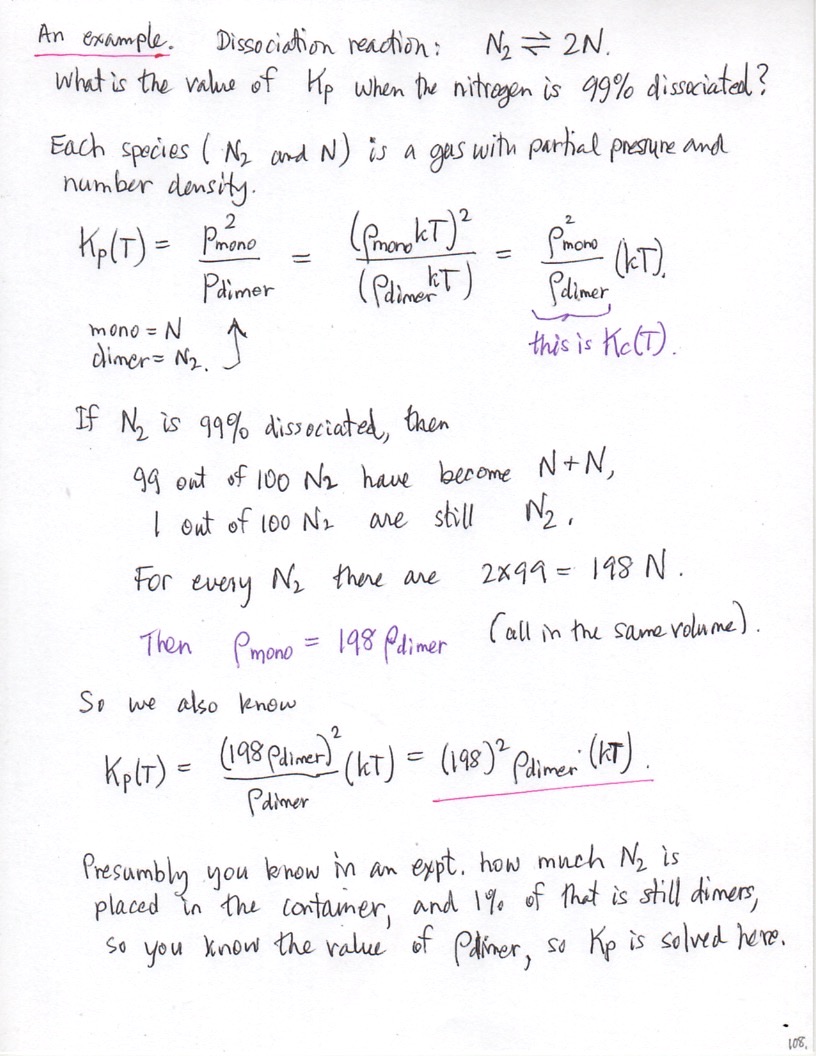 An example. Dissociation reaction: N₂ ⇌ 2N.
What is the value of Kp when the nitrogen is 99% dissociated?
Each species (N₂ and N) is a gas with partial pressure and
number density.
Kp(T) = p²mono / pdimer = (ρmono kT)² / (ρdimer kT) = ρ²mono / ρdimer (kT).
mono = N
dimer = N₂.
this is Kc(T).
If N₂ is 99% dissociated, then
99 out of 100 N₂ have become N+N,
1 out of 100 N₂ are still N₂.
For every N₂ there are 2×99 = 198 N.
Then ρmono = 198 ρdimer (all in the same volume).
So we also know
Kp(T) = (198 ρdimer)² / ρdimer (kT) = (198)² ρdimer · (kT).
Presumbly you know in an expt. how much N₂ is
placed in the container, and 1% of that is still dimers,
so you know the value of ρdimer, so Kp is solved here.
108.